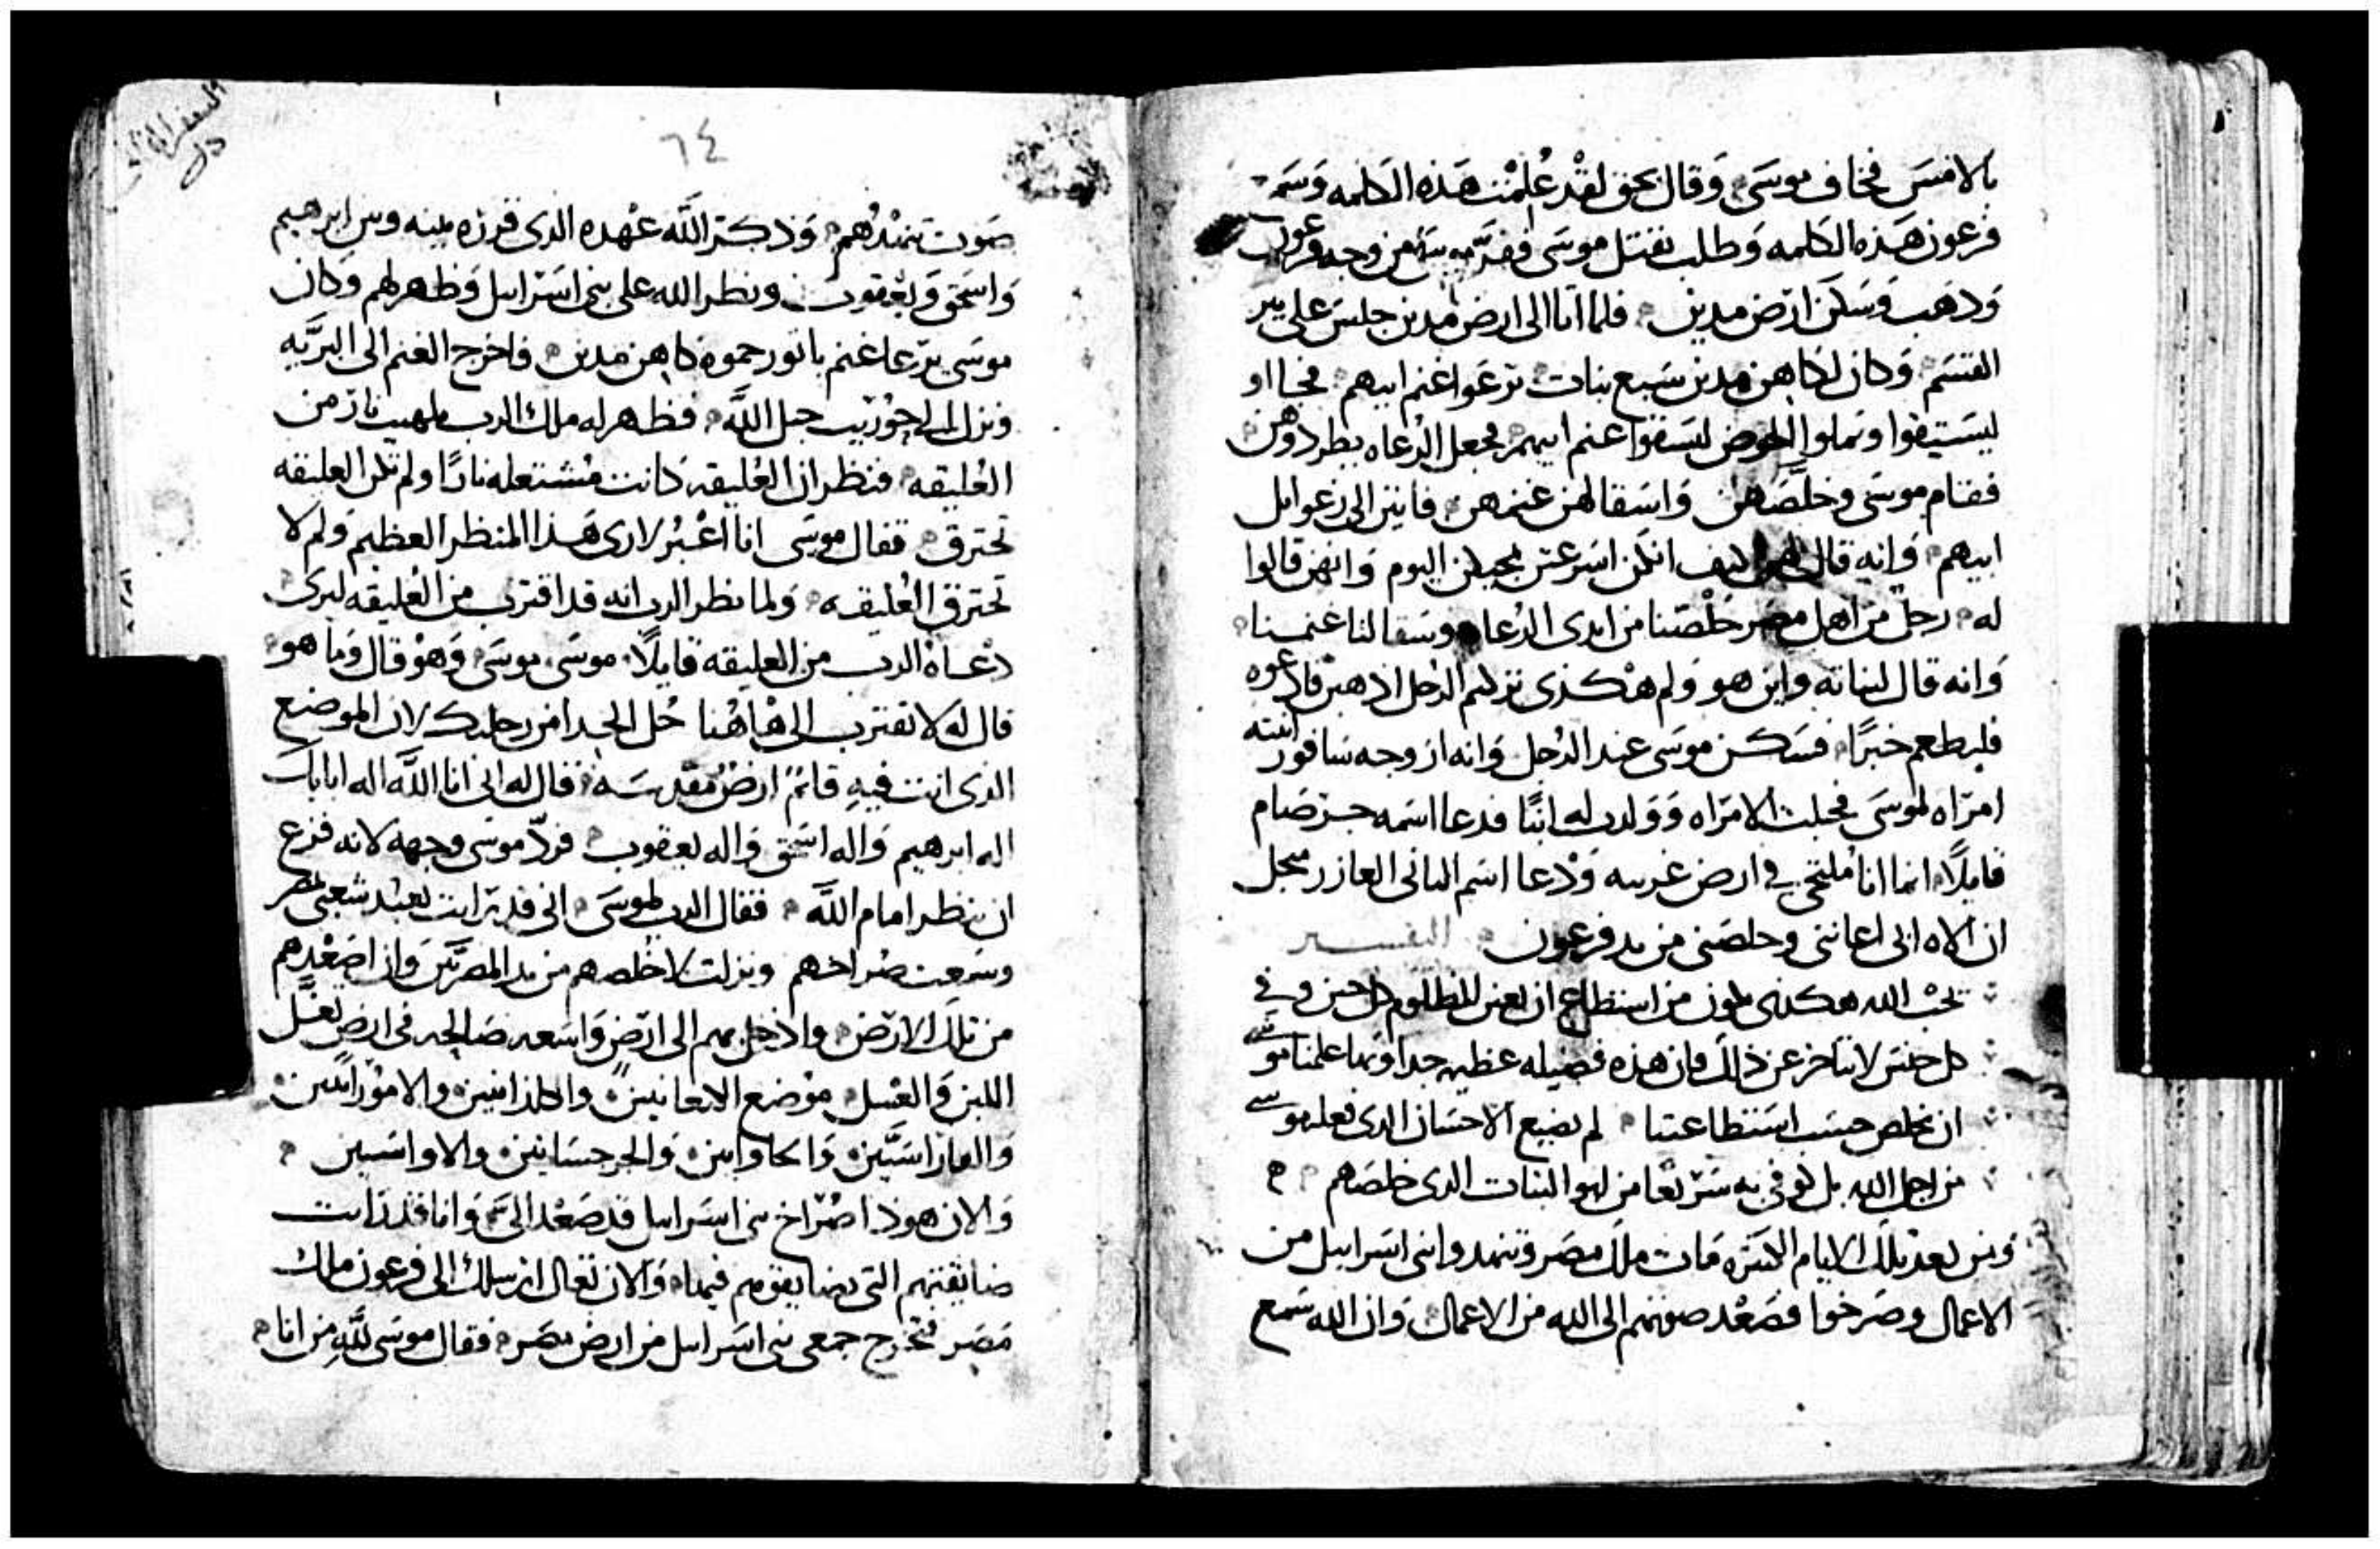 بالامس فخاف موسى وقال بحق لقد علمت هذه الكلمه وسمع
فرعون هذه الكلمه وطلب بقتل موسى ففر موسى من وجه فرعون
وذهب وسكن ارض مدين فلما اتا الى ارض مدين جلس على بير
القسم وكان لكاهن مدين سبع بنات ترعوا غنم ابيهم فجااو
ليستيقوا وتملوا الحوض ليسقوا غنم ابيهم فجعل الرعاه يطردوهن
فقام موسى وخلصهن واسقا لهن غنمهن فاتين الى رعوايل
ابيهم وانه قال لهن كيف انكن اسرعتن بمجيكن اليوم وانهن قالوا
له رجل من اهل مصر خلصنا من ايدى الرعاه وسقا لنا غنمنا
وانه قال لبناته واين هو ولم هكذى تركتم الرجل اذهبن فادعوه
فليطعم خبزا فسكن موسى عند الرجل وانه ازوجه سافورا ابنته
امراه لموسى فحبلت الامراه وولدت له ابنا فدعا اسمه جرصام
قايلا انما انا ملتجى فى ارض غريبه ودعا اسم الثانى العازر من اجل
ان الاه ابى اعاننى وخلصنى من يد فرعون التفسير
يحب الله هكدى يكون من استطاع ان يعين المظلوم كل حين وفى
كل جنس لا يتاخر عن ذلك فان هذه فضيله عظيمه جدا وبما علمنا موسى
ان نخلص حسب استطاعتنا لم يضيع الاحسان الدى فعله موسى
من اجل الله بل كوفى به سريعا من ابهوا البنات الدى خلصهم
ومن بعد تلك الايام الكثيره مات ملك مصر وتنهدوا بنى اسراييل من
الاعمال وصرخوا فصعد صوتهم الى الله من الاعمال وان الله سمع
٦٤
صوت تنهدهم وذكر الله عهده الذى قرره بينه وبين ابرهيم
واسحق ويعقوب ونظر الله على بنى اسراييل وظهر لهم وكان
موسى يرعا غنم ياثور حموه كاهن مدين فاخرج الغنم الى البريه
ونزل الى حوريب جبل الله فظهر له ملاك الرب بلهيب نار من
العليقه فنظر ان العليقه كانت مشتعله نارا ولم تكن العليقه
تحترق فقال موسى انا اعبر لارى هذا المنظر العظيم ولم لا
تحترق العليقه ولما نظر الرب انه قد اقترب من العليقه ليرى
دعاه الرب من العليقه قايلا موسى موسى وهو قال وما هو
قال له لا تقترب الى هاهنا حل الحدا من رجليك لان الموضع
الذى انت فيه قايم ارض مقدسه فقال له انى انا الله اله اباياك
اله ابرهيم واله اسحق واله يعقوب فرد موسى وجهه لانه فزع
ان ينظر امام الله فقال الرب لموسى انى قد رايت تعبد شعبى بمصر
وسمعت صراخهم ونزلت لاخلصهم من يد المصريين وان اصعدهم
من تلك الارض وادخل بهم الى ارض واسعه صالحه فى ارض تغسل
اللبن والعسل موضع الكنعانيين والكلدانيين والامورانيين
والفارازاسيين والحاوايين والجرجسانيين والاواسيين
والان هودا صراخ بنى اسراييل قد صعد الى وانا قد رايت
ضايقتهم التى يضايقوهم فيها والان تعال ارسلك الى فرعون ملك
مصر تخرج جمعى بنى اسراييل من ارض مصر فقال موسى لله من انا